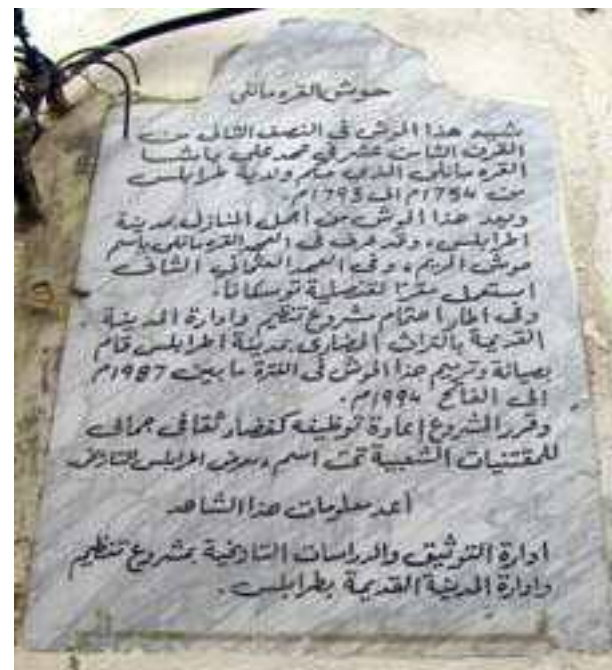 حوش القره مانلي
شيد هذا الحوش في النصف الثاني من
القرن الثامن عشر في عهد علي باشا
القره مانلي الذي حكم ولاية طرابلس
من 1754م الى 1793م.
ويعد هذا الحوش من أجمل المنازل بمدينة
اطرابلس، وقد عرف في العهد القره مانلي بأسم
حوش الحريم، وفي العهد العثماني الثاني
استعمل مقرا لقنصلية توسكانا.
وفي اطار اهتمام مشروع تنظيم وادارة المدينة
القديمة بالتراث الحضاري بمدينة اطرابلس قام
بصيانة وترميم هذا الحوش في الفترة ما بين 1987م
الى الفاتح 1994م.
وقرر المشروع إعادة توظيفه كفضاء ثقافي جمالي
للمقتنيات الشعبية تحت اسم، معرض اطرابلس التاريخي
أعد معلومات هذا الشاهد
ادارة التوثيق والدراسات التاريخية بمشروع تنظيم
وادارة المدينة القديمة بطرابلس.